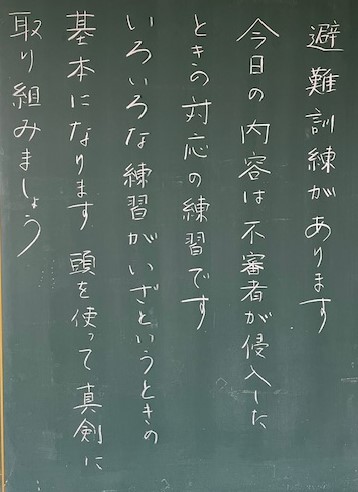 避難訓練があります
今日の内容は不審者が侵入した
ときの対応の練習です
いろいろな練習がいざというときの
基本になります 頭を使って真剣に
取り組みましょう